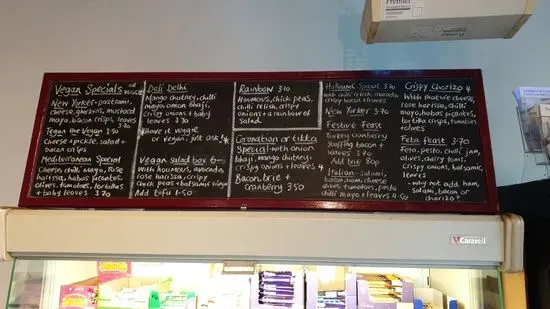 Premier
Vegan Specials or
New Yorker - pastrami,
cheese, gherkins, mustard
mayo, bacon crispy
leaves 3.70
Tegan the Vegan 3.50
Cheese + pickle, salad +
bacon crisps
Mediterranean Special
Cheezin chilli Mayo, Rose
harissa, habas picantas,
olives, tomatoes, tortillas
+ baby leaves 3.70
Deli Delhi
Mango chutney, chilli
mayo, onion bhaji,
Crispy onions + baby
leaves 3.30
Have it veggie
or vegan, just ask!
Vegan salad box 6
With houmous, avocado,
rose harissa, crispy
chick peas + balsamic vinegar
Add tofu 1.50
Rainbow 3.70
Houmous, chick peas,
chilli relish, crispy
onions + a rainbow of
salad
Coronation or tikka
Special - with onion
bhaji, mango chutney,
crispy onions + leaves 4
Bacon, brie +
cranberry 3.50
Halloumi Special 3.70
with chilli relish, avocado,
crispy bacon + leaves
New Yorker 3.70
Festive Feast
Turkey, cranberry
Stuffing bacon +
leaves 3.70
Add brie 80p
Italian - salami,
bacon, ham, cheese
olives, tomatoes, pesto
chilli mayo + leaves 4.50
Crispy Chorizo 4
With mature cheese,
rose harissa, chilli
mayo, habas picantas,
tortilla crisps, tomatoes
+ olives
Feta Feast 3.70
Feta, pesto, chilli jam,
olives, cherry toms,
Crispy onions, balsamic,
leaves
- why not add ham,
salami, bacon or
chorizo?
Caravell